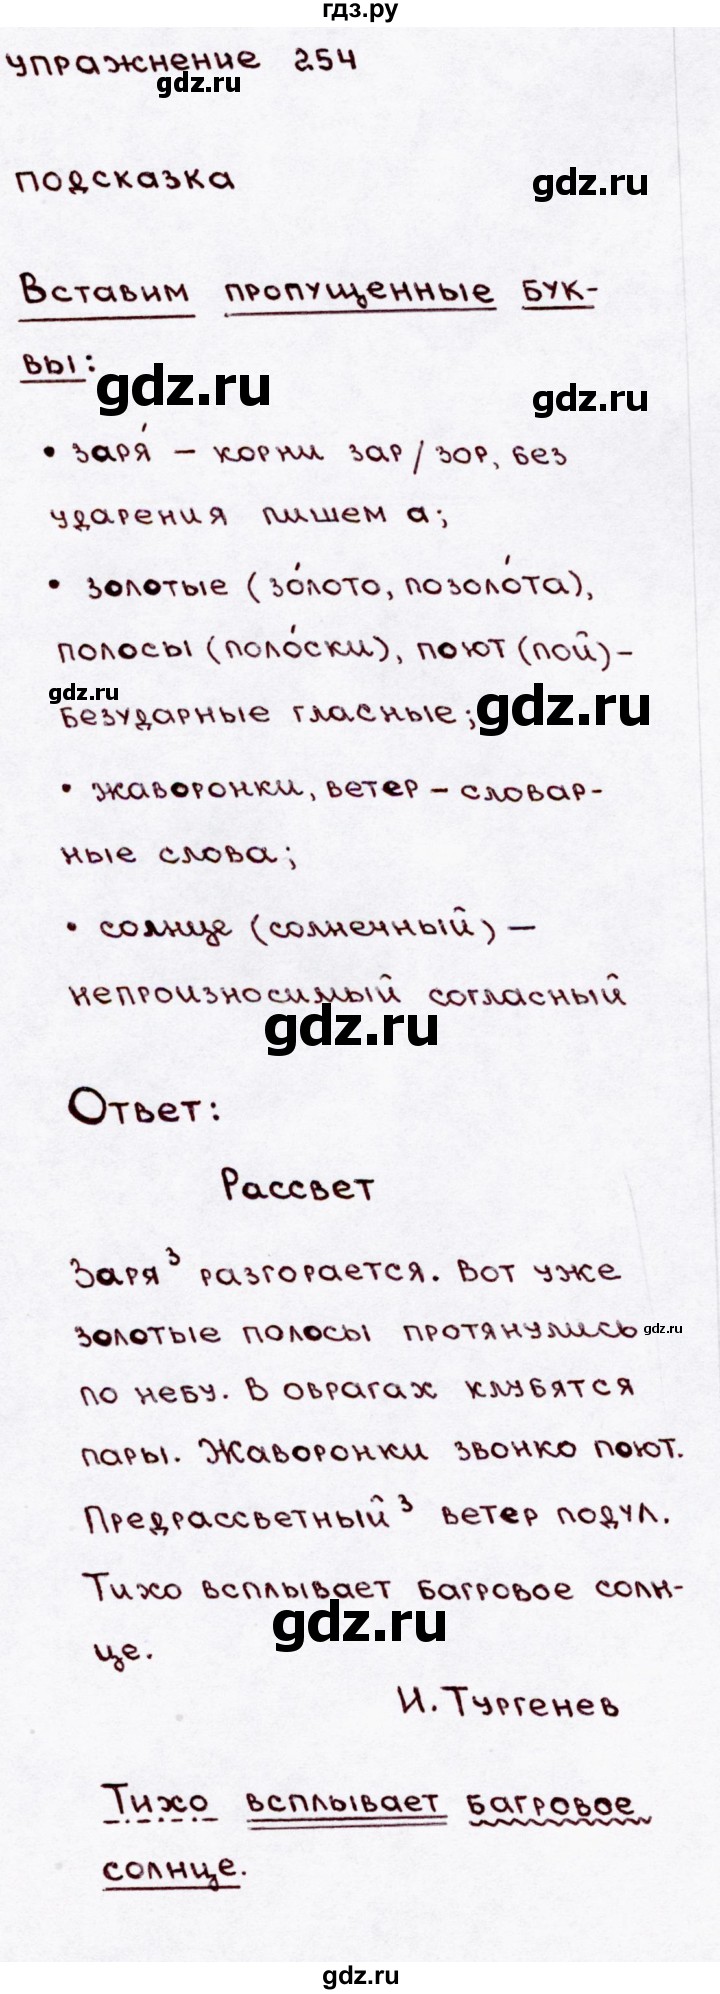 гдз.ру
упражнение 254
gdz.ru
подсказка
gdz.ru
Вставим пропущенные бук-
вы:
gdz.ru
gdz.ru
• заря́ – корни зар/зор, без
ударения пишем а;
• золотые (зо́лото, позоло́та),
полосы (поло́ски), поют (пой) –
gdz.ru
gdz.ru
безударные гласные;
• жаворонки, ветер – словар-
ные слова;
• солнце (солнечный) –
непроизносимый согласный
gdz.ru
Ответ:
Рассвет
Заря³ разгорается. Вот уже
золотые полосы протянулись
gdz.ru
по небу. В оврагах клубятся
пары. Жаворонки звонко поют.
Предрассветный³ ветер подул.
Тихо всплывает багровое солн-
gdz.ru
це.
И. Тургенев
Тихо всплывает багровое
солнце.
gdz.ru